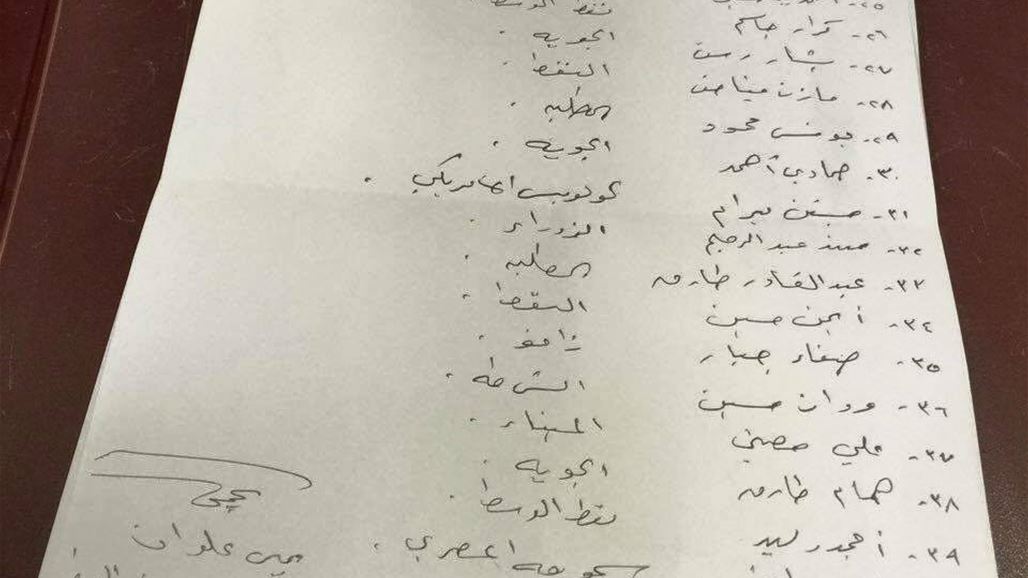 ٢٥-
نفط الوسط
٢٦- كرار جاسم
الجوية .
٢٧- بشار رسن
النفط .
٢٨- مازن فياض
الطلبه .
٢٩- يونس محمود
الجويه .
٣٠- حمادي أحمد
كولومبس الامريكي .
٣١- جستن ميرام
الزوراء .
٣٢- مهند عبد الرحيم
الطلبه .
٣٣- عبد القادر طارق
النفط .
٣٤- أيمن حسين
زاخو .
٣٥- صفاء جبار
الشرطه .
٣٦- مروان حسين
الميناء .
٣٧- علي حصني
الجويه .
٣٨- همام طارق
نفط الوسط .
٣٩- أمجد وليد
المصري .
يحيى
يحيى علوان